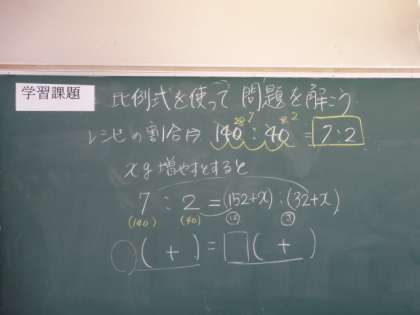 学習課題 比例式を使って問題を解こう
レシピの割合は 140:40 = 7:2
xg増やすとすると
7 : 2 = (152+x) : (32+x)
(140) (40)
○( + ) = □( + )